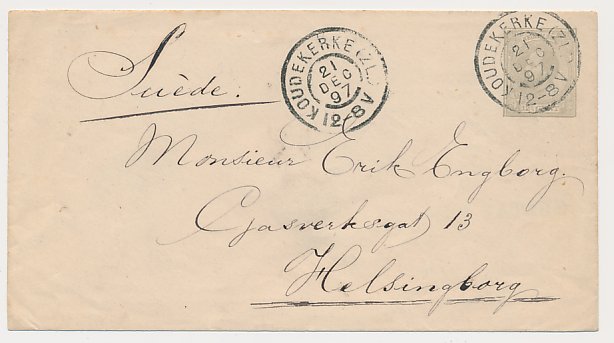 Suède.
KOUDEKERKE (ZL.)
21
DEC
97
12-8V
KOUDEKERKE (ZL.)
21
DEC
97
12-8V
Monsieur Erik Engborg.
Gasverksgat 13
Helsingborg